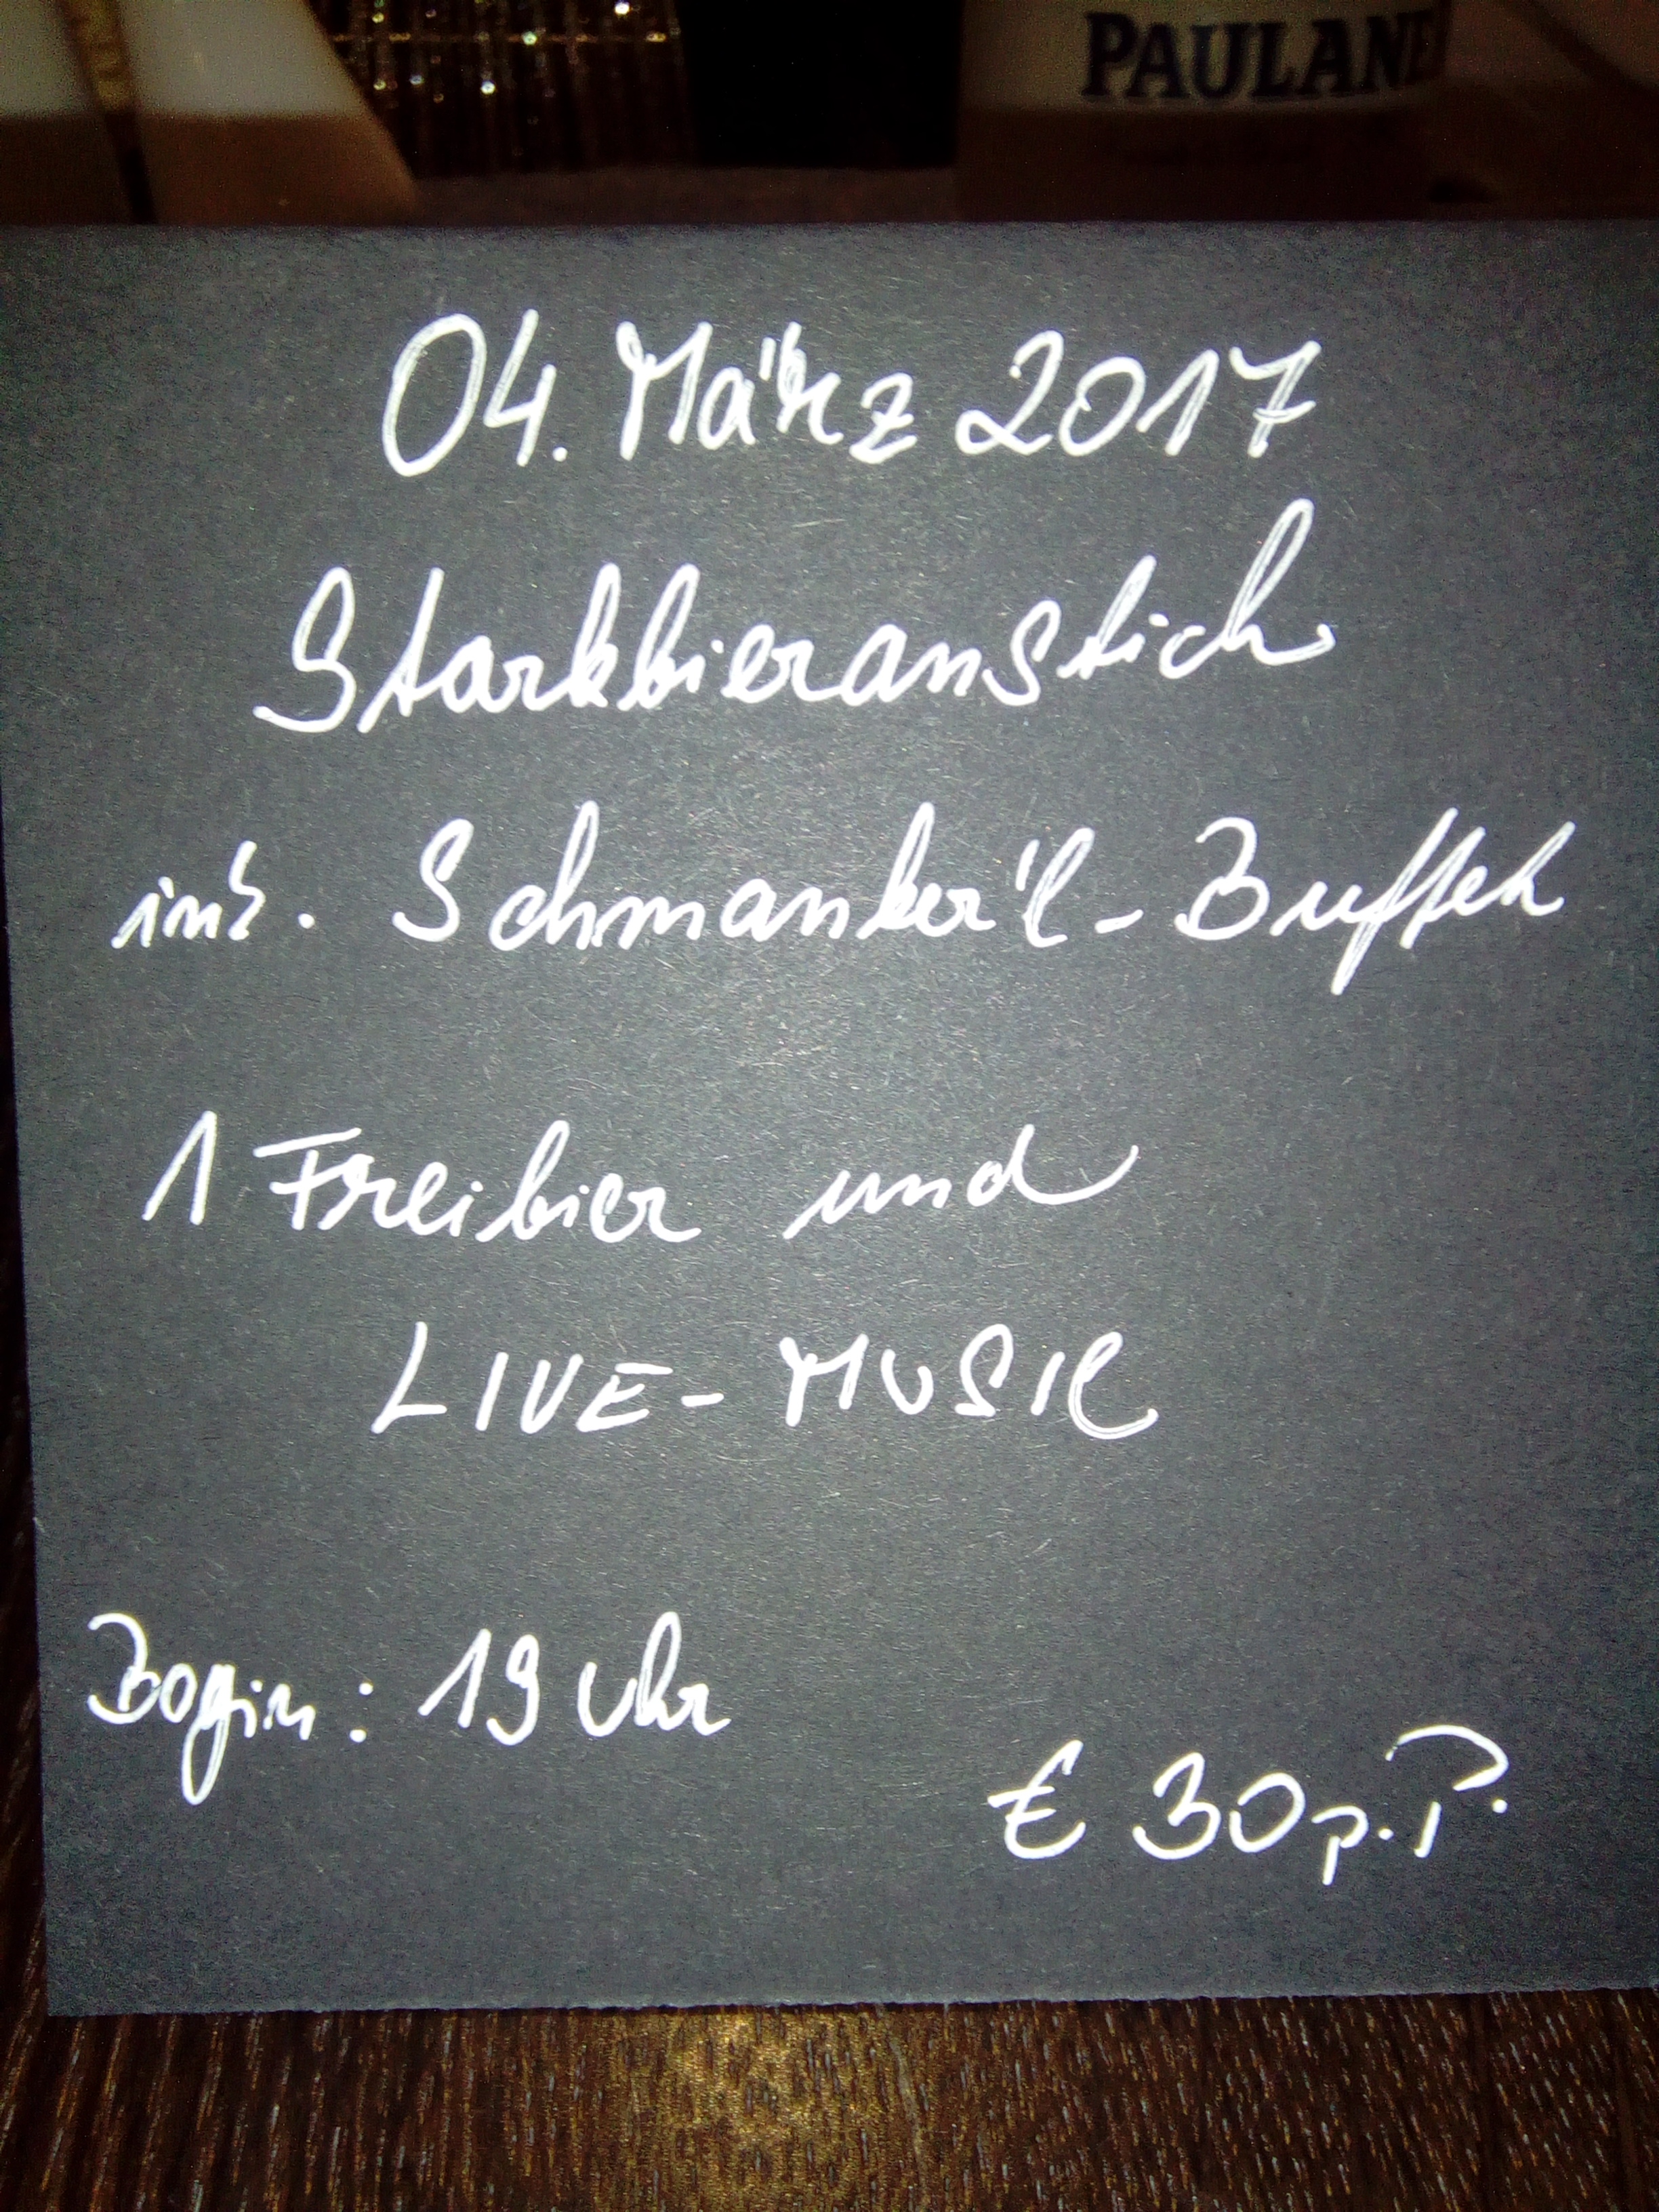 PAULANE
04. März 2017
Starkbieranstich
ink. Schmanker'l-Buffet
1 Freibier und
LIVE-MUSIK
Begin: 19 Uhr
€ 30 p.P.